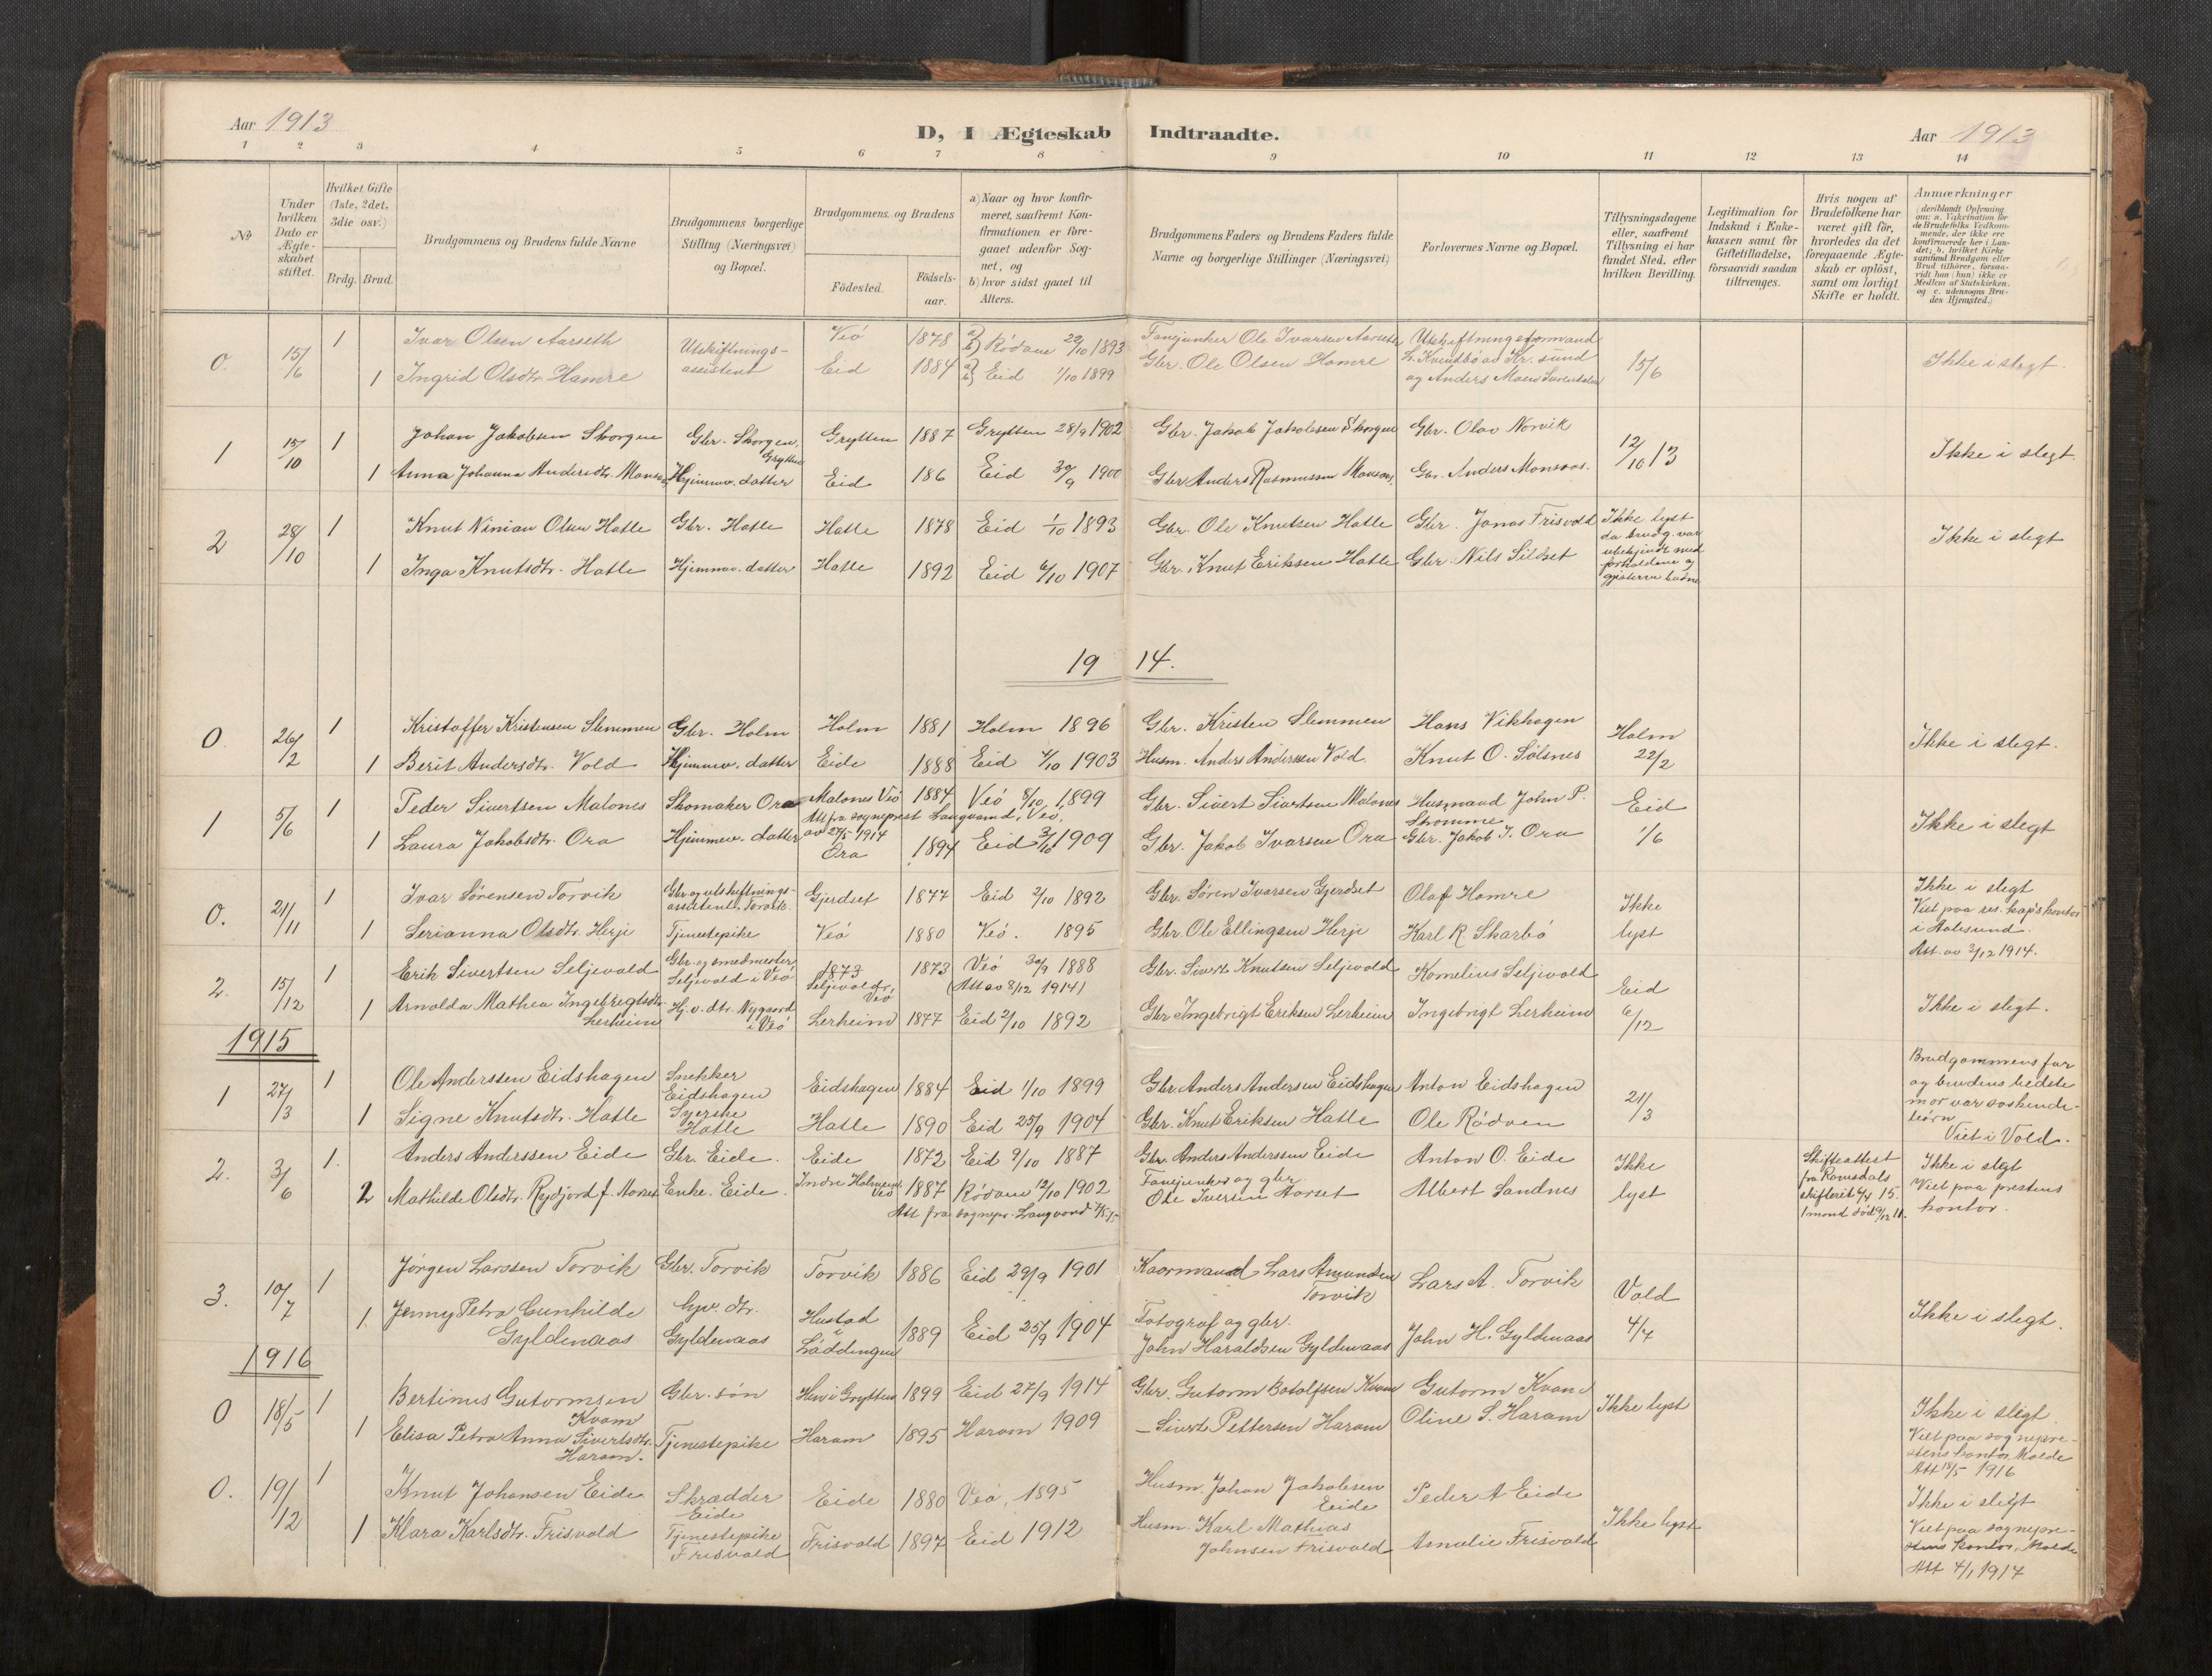 Aar 1913
D, I Ægteskab Indtraadte.
Aar 1913
1 2 3 4 5 6 7 8 9 10 11 12 13 14
No
Under hvilken Dato er Ægteskabet stiftet.
Hvilket Gifte (1ste, 2det, 3die osv.)
Brdg. Brud.
Brudgommens og Brudens fulde Navne
Brudgommens borgerlige Stilling (Næringsvei) og Bopæl.
Brudgommens og Brudens
Födested.
Födsels-aar.
a) Naar og hvor konfirmeret, saafremt Konfirmationen er foregaaet udenfor Sognet, og
b) hvor sidst gaaet til Alters.
Brudgommens Faders og Brudens Faders fulde Navne og borgerlige Stillinger (Næringsvei)
Forlovernes Navne og Bopæl.
Tillysningsdagene eller, saafremt Tillysning ei har fundet Sted, efter hvilken Bevilling.
Legitimation for Indskud i Enkekassen samt for Giftetilladelse, forsaavidt saadan tiltrænges.
Hvis nogen af Brudefolkene har været gift för, hvorledes da det foregaaende Ægteskab er oplöst, samt om lovligt Skifte er holdt.
Anmærkninger (deriblandt Oplysning om: a. Vakcination for de Brudefolks Vedkommende, der ikke ere konfirmerede her i Landet; b. hvilket Kirkesamfund Brudgom eller Brud tilhörer, forsaavidt han (hun) ikke er Medlem af Statskirken. og c. udensogns Brudes Hjemsted.)
0. 15/6 1 Ivar Olsen Aarseth Utskiftnings-assistent Veö 1878 a) b) Rödven 29/10 1893 Fanejunker Ole Ivarsen Aarseth Utskiftningsformand
1 Ingrid Olsdtr. Hamre Eid 1884 a) b) Eid 1/10 1899 Gbr. Ole Olsen Hamre Kr. sund og Anders Moen 15/6 Ikke i slegt.
1 15/10 1 Johan Jakobsen Skorgen Gbr. Skorgen, Grytten Grytten 1887 Grytten 28/9 1902 Gbr. Jakob Jakobsen Skorgen Gbr. Olav Norvik 12/10 13 Ikke i slegt.
1 Anna Johanna Andersdtr. Monsaas Hjemmev. datter Eid 186 Eid 30/9 1900 Gbr Anders Rasmussen Monsaas. Gbr. Anders Monsaas.
2 28/10 1 Knut Ninian Olsen Hatle Gbr. Hatle Hatle 1878 Eid 1/10 1893 Gbr. Ole Knutsen Hatle Gbr. Jonas Frisvold Ikke lyst da brudg. var ubekjendt med forholdene og Ikke i slegt
1 Inga Knutsdtr. Hatle Hjemmev. datter Hatle 1892 Eid 6/10 1907 Gbr. Knut Eriksen Hatle Gbr. Nils Sildset
1914.
0. 26/2 1 Kristoffer Kristensen Slemmen Gbr. Holm Holm 1881 Holm 1896 Gbr. Kristen Slemmen Hans Vikhagen Holm 22/2 Ikke i slegt.
1 Berit Andersdtr. Vold Hjemmev. datter Eide 1888 Eid 4/10 1903 Husm. Anders Anderssen Vold. Knut O. Sölsnes
1 5/6 1 Peder Sivertsen Malones Skomaker Ora Malones Veö 1884 Veö 8/10 1899 Gbr. Sivert Sivertsen Malones Husmand John P. Skomme Eid 1/6 Ikke i slegt
Att fra sogneprest Langvand, Veö, av 27/5 1914
1 Laura Jakobsdtr. Ora Hjemmev. datter Ora 1894 Eid 3/10 1909 Gbr. Jakob Ivarsen Ora Gbr. Jakob I. Ora
0. 21/11 1 Ivar Sörensen Torvik Gbr og utskiftnings-assistent, Torvik. Gjerdset 1877 Eid 2/10 1892 Gbr. Sören Ivarsen Gjerdset Olaf Hamre Ikke lyst Ikke i slegt Viet paa res. kap's kontor i Aalesund. Att. av 3/12 1914.
1 Serianna Olsdtr. Herje Tjenestepike Veö 1880 Veö. 1895 Gbr. Ole Ellingsen Herje Karl R. Skarbö
2. 15/12 1 Erik Sivertsen Seljevold Gbr. og smedmester Seljevold i Veö 1873 Seljevold, Veö 1873 Veö 30/9 1888 (Att av 8/12 1914) Gbr. Sivert Knutsen Seljevold Kornelius Seljevold Eid 6/12 Ikke i slegt.
1 Arnolda Mathea Ingebrigtsdtr. Lerheim Hj. v. dtr. Nygaard i Veö Lerheim 1877 Eid 2/10 1892 Gbr Ingebrigt Eriksen Lerheim Ingebrigt Lerheim
1915
1 27/3 1 Ole Anderssen Eidshagen Snekker Eidshagen Eidshagen 1884 Eid 1/10 1899 Gbr Anders Andersen Eidshagen Anton Eidshagen 21/3 Brudgommens far og brudens bedstemor var söskendebörn Viet i Vold.
1 Signe Knutsdtr. Hatle Syerske Hatle Hatle 1890 Eid 25/9 1904 Gbr. Knut Eriksen Hatle Ole Rödven
2. 3/6 1. Anders Anderssen Eide Gbr. Eide. Eide 1872 Eid 9/10 1887 Gbr. Anders Anderssen Eide Anton O. Eide Ikke lyst Skifteattest fra Romsdals skifteret 6/4 15. 1 mand död 9/12 11. Ikke i slegt Viet paa prestens kontor.
2 Mathilde Olsdtr. Rydjord f. Aarset Enke. Eide. Indre Holmem Veö 1887 Rödven 12/10 1902 Fanejunker og gbr. Ole Iversen Aarset Albert Sandnes
Att fra sognepr. Langvand
3. 10/7 1 Jörgen Larssen Torvik Gbr. Torvik Torvik 1886 Eid 29/9 1901 Kaarmand Lars Amundsen Torvik Lars A. Torvik Vold 4/7 Ikke i slegt.
1. Jenny Petra Gunhilde Gyldenaas hjv. dtr. Gyldenaas Hustad i Löddingen 1889 Eid 25/9 1904 Fotograf og gbr. John Haraldsen Gyldenaas John H. Gyldenaas
1916
0 18/5 1 Bertinus Gutormsen Kvam Gbr. sön Hen i Grytten 1899 Eid 27/9 1914 Gbr. Gutorm Botolfsen Kvam Gutorm Kvam Ikke lyst Ikke i slegt Viet paa sogneprestens kontor, Molde Att 18/5 1916
1 Elisa Petra Anna Sivertsdtr. Haram. Tjenestepike Haram 1895 Haram 1909 – Sivert Pettersen Haram Oline S. Haram
0. 19/12 1 Knut Johansen Eide Skrædder Eide Eide 1880 Veö, 1895 Husm. Johan Jakobsen Eide Peder A Eide Ikke lyst Ikke i slegt Viet paa sogneprestens kontor, Molde Att 4/1 1917
1 Klara Karlsdtr. Frisvold Tjenestepike Frisvold Frisvold 1897 Eid 1912 Husm. Karl Mathias Johnsen Frisvold Amalie Frisvold